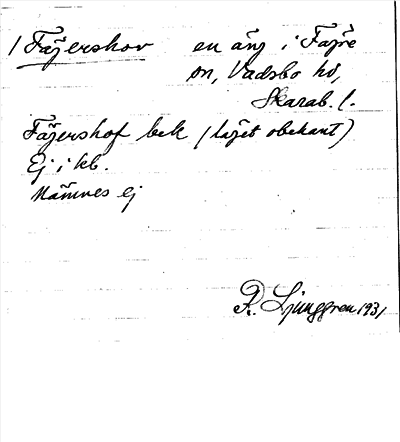 / Fägershov en äng i Fägre
sn, Vadsbo hd,
Skarab. l.
Fägershof bek (läget obekant)
Ej i kb.
Nämnes ej
R. Ljunggren 1931